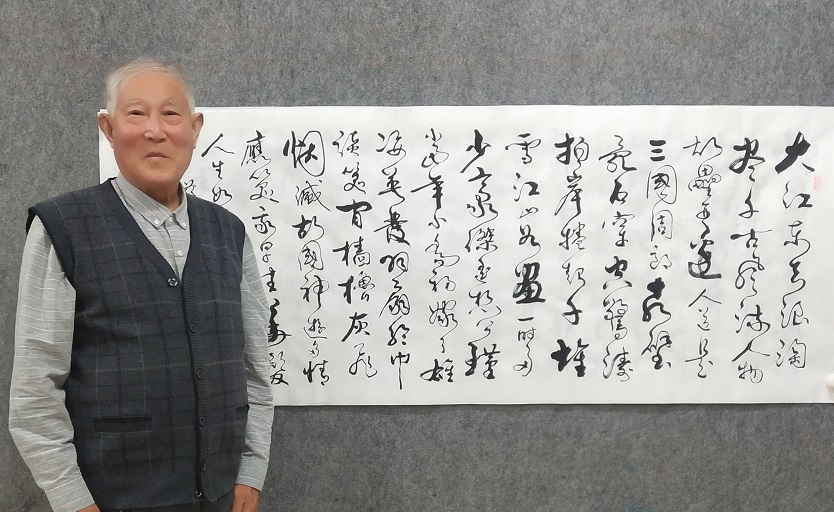 大江东去浪淘
尽千古风流人物
故壘西邊人道是
三國周郎赤壁
乱石穿空驚涛
拍岸捲起千堆
雪江山如畫一时多
少豪傑遥想公瑾
当年小喬初嫁了雄
姿英發羽扇纶巾
談笑间樯櫓灰飞
烟滅故國神遊多情
應笑我早生华髮
人生如